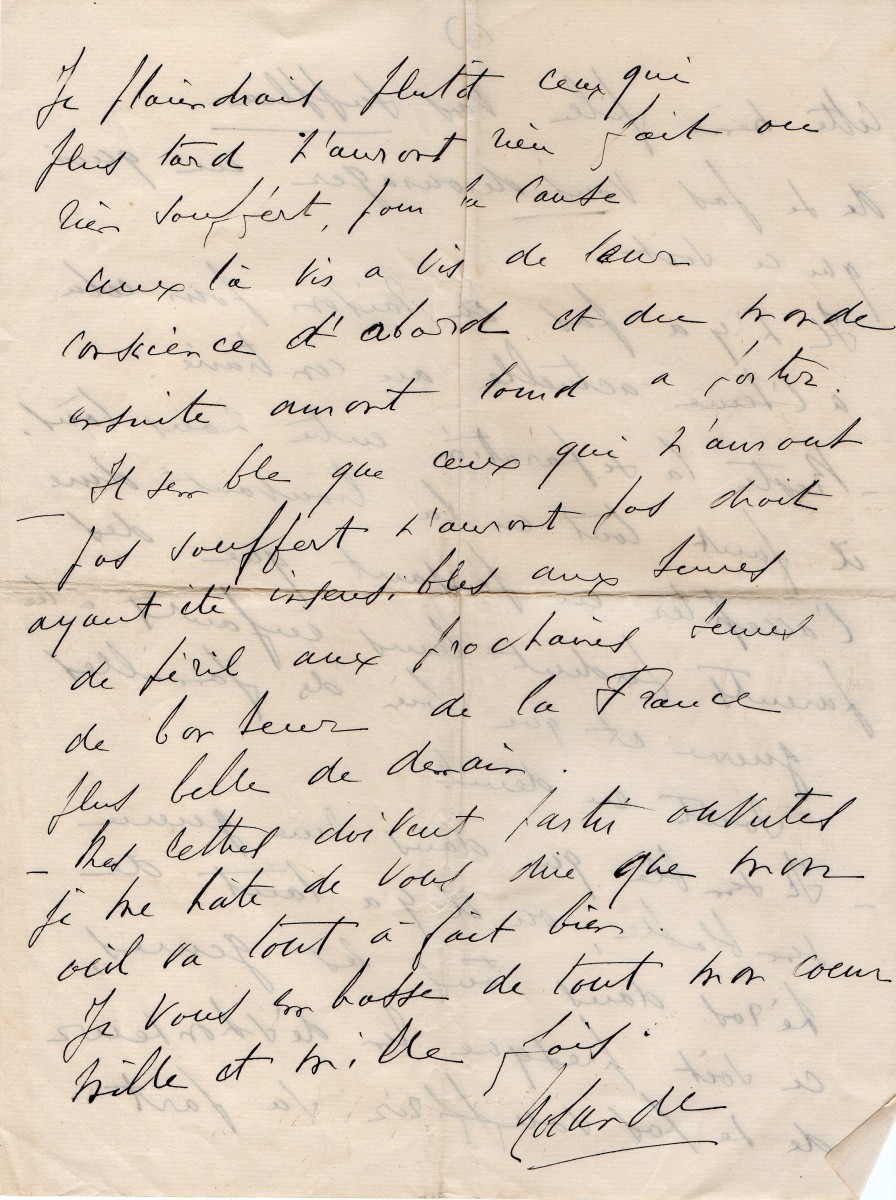 Je plaindrais plutôt ceux qui
plus tard n'auront rien fait ou
rien souffert, pour la cause
ceux là vis a vis de leur
conscience d'abord et du monde
ensuite auront lourd a porter.
Il semble que ceux qui n'auront
pas souffert n'auront pas droit
ayant été insensibles aux heures
de péril aux prochaines heures
de bonheur de la France
plus belle de demain.
- Mes lettres doivent partir ouvertes
je me hâte de vous dire que mon
oeil va tout à fait bien.
Je vous embrasse de tout mon coeur
mille et mille fois.
Yolande